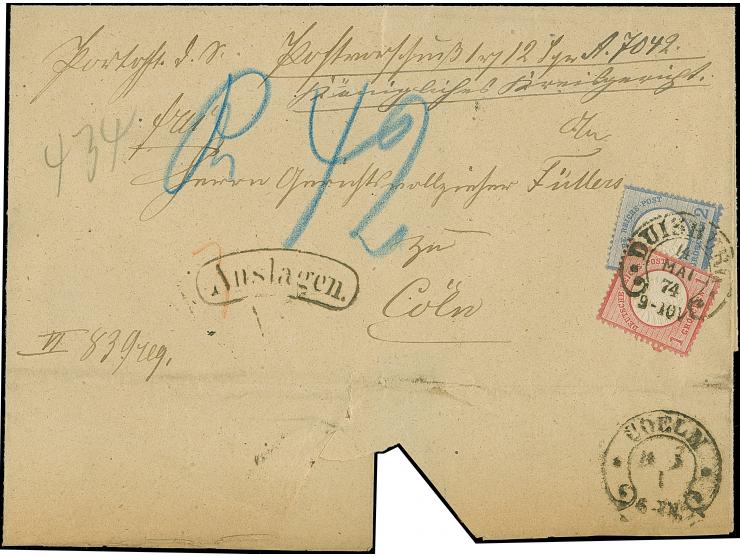 Portopfl. d. S. Postvorschuß 12 Sgr A. 7042.
Königliches Kreisgericht.
frei
434
42
An
Herrn Gerichtsvollzieher Füllers
zu
Cöln
Auslagen.
VI 839 reg.
DEUTSCHE REICHS-POST
2
DUISBURG
14
MAI
74
9-10V
DEUTSCHE REICHS-POST
1
1 GROSCHEN
COELN
14 5
1